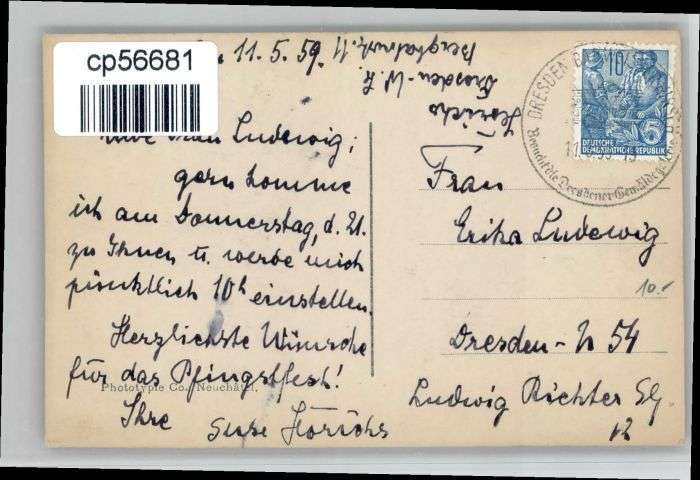 cp56681
11. 5. 59.
Frau Ludewig,
gern komme
ich am Donnerstag, d. 21.
zu Ihnen u. werde mich
pünktlich 10h einstellen.
Herzlichste Wünsche
für das Pfingstfest!
Phototypie Co., Neuchâtel.
Ihre
Suse Hörichs
Dresden-
DRESDEN
Besucht die Dresdener
10
DEUTSCHE
DEMOKRATISCHE REPUBLIK
Frau
Erika Ludewig
10.-
Dresden-N 54
Ludwig Richter
12